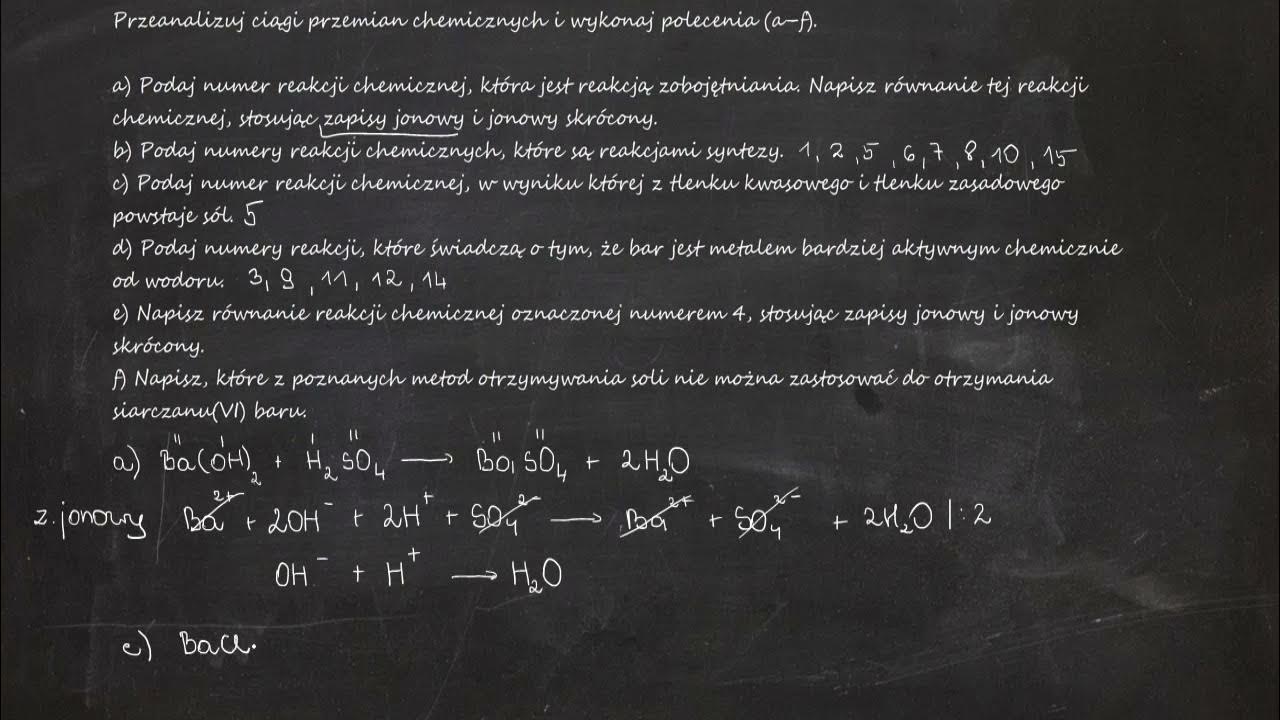 Przeanalizuj ciągi przemian chemicznych i wykonaj polecenia (a–f).
a) Podaj numer reakcji chemicznej, która jest reakcją zobojętniania. Napisz równanie tej reakcji
chemicznej, stosując zapisy jonowy i jonowy skrócony.
b) Podaj numery reakcji chemicznych, które są reakcjami syntezy. 1, 2, 5, 6, 7, 8, 10, 15
c) Podaj numer reakcji chemicznej, w wyniku której z tlenku kwasowego i tlenku zasadowego
powstaje sól. 5
d) Podaj numery reakcji, które świadczą o tym, że bar jest metalem bardziej aktywnym chemicznie
od wodoru. 3, 9, 11, 12, 14
e) Napisz równanie reakcji chemicznej oznaczonej numerem 4, stosując zapisy jonowy i jonowy
skrócony.
f) Napisz, które z poznanych metod otrzymywania soli nie można zastosować do otrzymania
siarczanu(VI) baru.
II I I II II II
a) Ba(OH)₂ + H₂SO₄ → BaSO₄ + 2H₂O
z. jonowy Ba²⁺ + 2OH⁻ + 2H⁺ + SO₄²⁻ → Ba²⁺ + SO₄²⁻ + 2H₂O |:2
OH⁻ + H⁺ → H₂O
e) BaCl